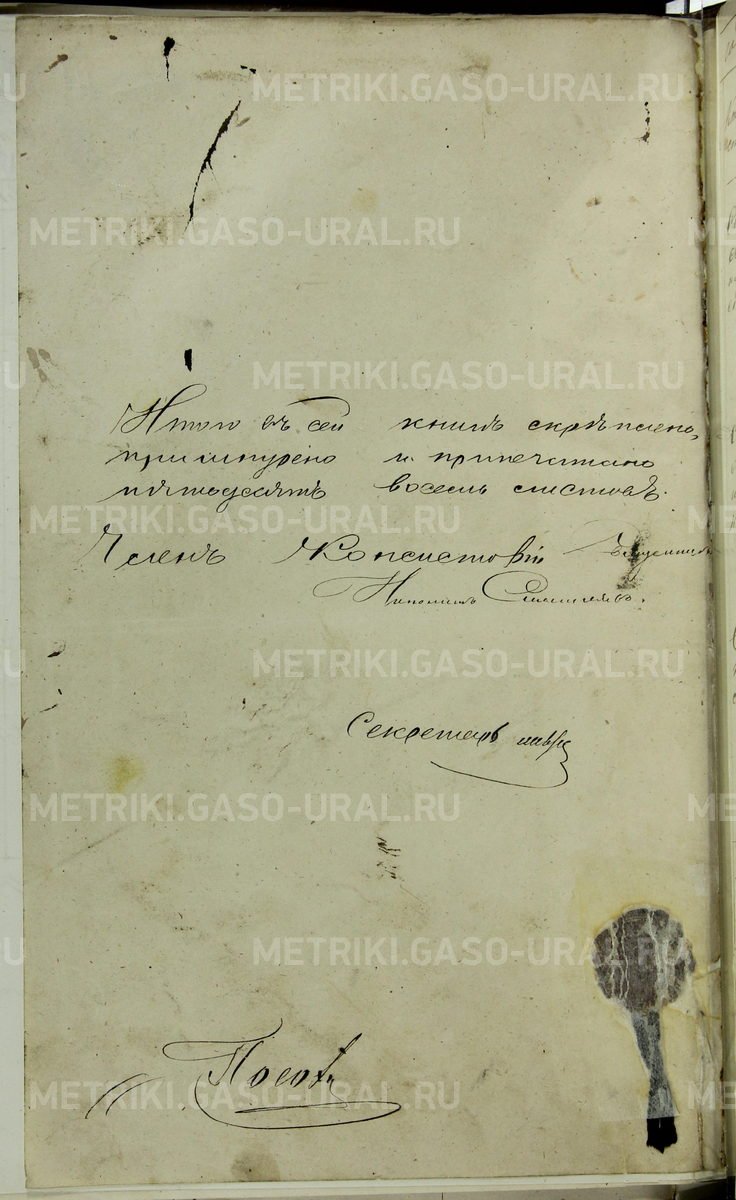 METRIKI.GASO-URAL.RU
METRIKI.GASO-URAL.RU
METRIKI.GASO-URAL.RU
Итого въ сей книгѣ скрѣплено,
пришнурено и припечатано
пятьдесятъ восемь листовъ.
METRIKI.GASO-URAL.RU
Членъ Консисторіи Священникъ
METRIKI.GASO-URAL.RU
Секретарь
METRIKI.GASO-URAL.RU
METRIKI.GASO-URAL.RU
METRIKI.GASO-URAL.RU